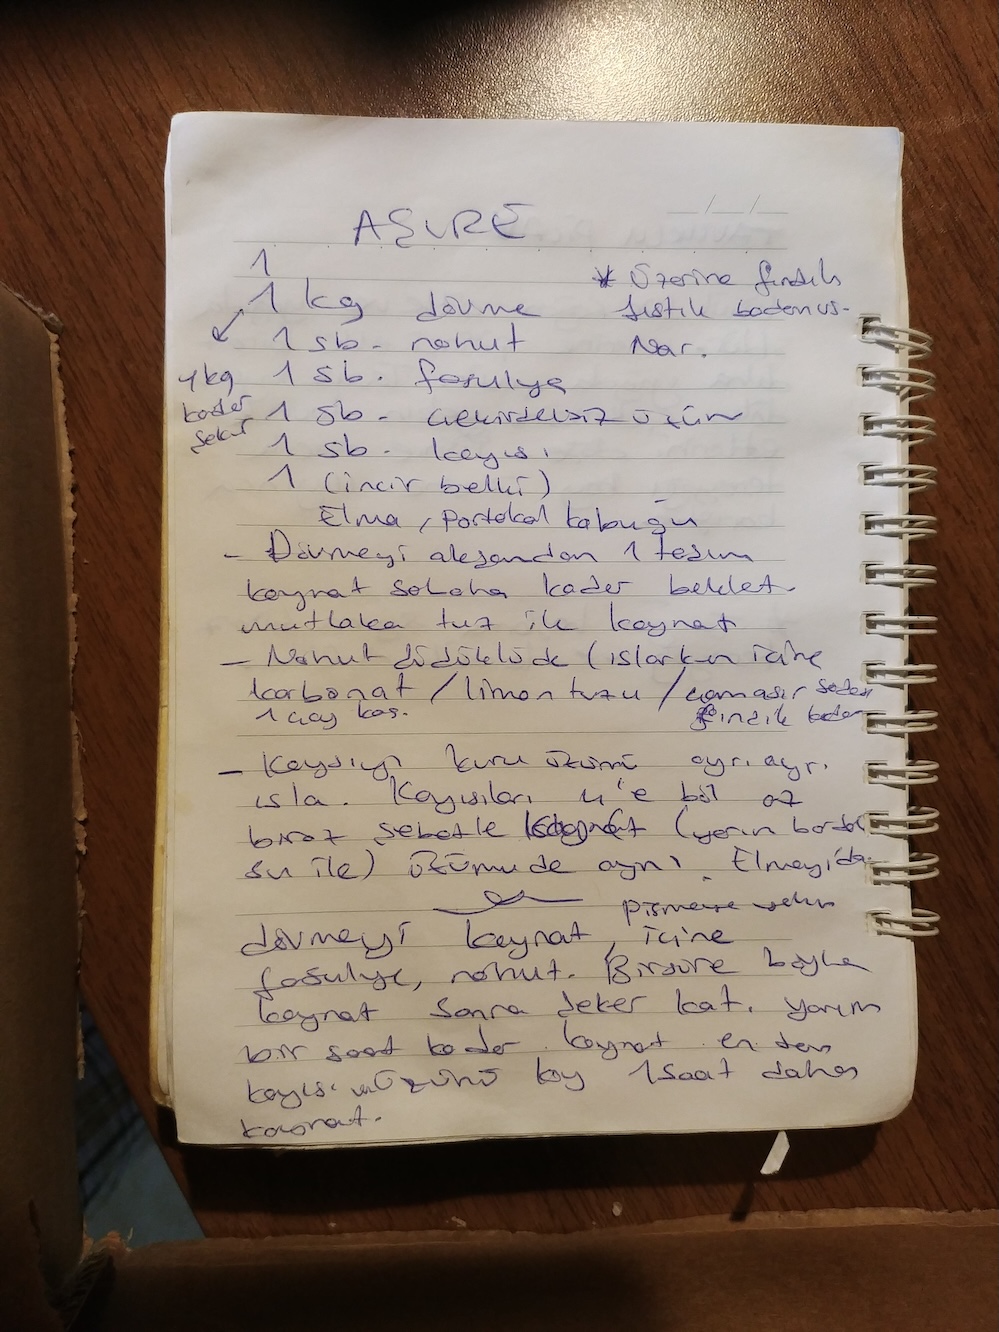 AŞURE
1
1 kg dövme
1 sb. nohut
1 sb. fasulye
1 sb. çekirdeksiz üzüm
1 sb. kayısı
1 (incir belki)
Elma, portakal kabuğu
* Üzerine fındık
fıstık badem vs.
Nar.
4 kg
kadar
şeker
- Dövmeyi akşamdan 1 taşım
kaynat sabaha kadar beklet.
mutlaka tuz ile kaynat
- Nohut düdüklüde (ıslarken içine
karbonat / limon tuzu / çamaşır sodası
1 çay kaş. fındık kadar
- Kayısıyı kuru üzümü ayrı ayrı
ısla. Kayısıları 4'e böl az
biraz şekerle kaynat (yarım bardak
su ile) Üzümü de aynı. Elmayı da.
dövmeyi kaynat, pişmeye yakın içine
fasulye, nohut. Bir süre böyle
kaynat sonra şeker kat. yarım
bir saat kadar kaynat en son
kayısı üzümü koy 1 saat daha
kaynat.